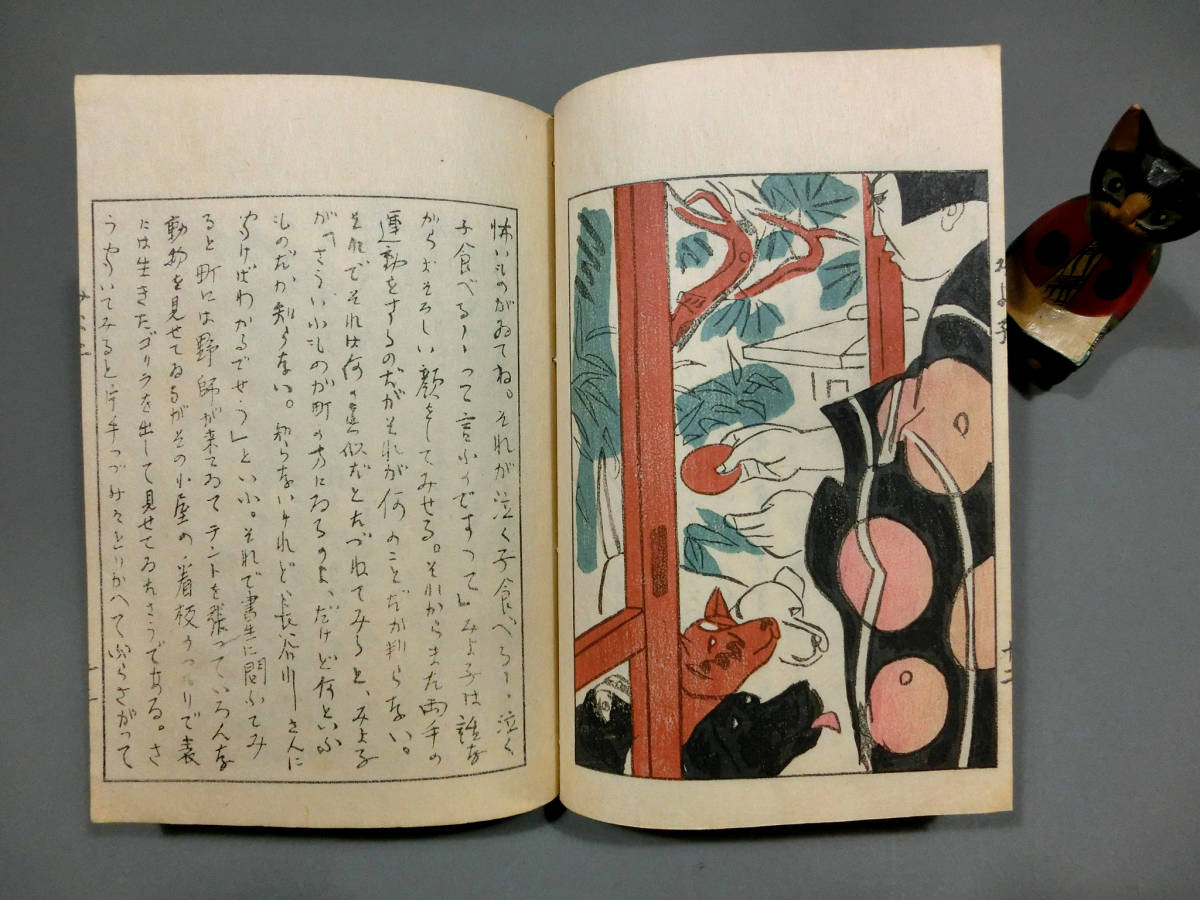 怖いものがゐてね。それが泣く子食べろ〱、泣く
子食べろ〱って言ふのですって」みよ子は誰な
がらおそろしい顔をしてみせる。それからまた両手の
運動をするのだがそれが何のことだか判らない。
それでそれは何の真似だとたづねてみると、みよ子
が「さういふものが町の方にゐるのよ、だけど何といふ
ものだか知らない。知らないけれど、長谷川さんに
聞けばわかるでせう」といふ。それで書生に問ふてみ
ると町には野師が来てゐてテントを張っていろんな
動物を見せてゐるがその小屋の看板うつりで表
には生きたゴリラを出して見せてゐるさうである。さ
う聞いてみると片手づつみきをとりかへてぶらさがって
みよ子
十二